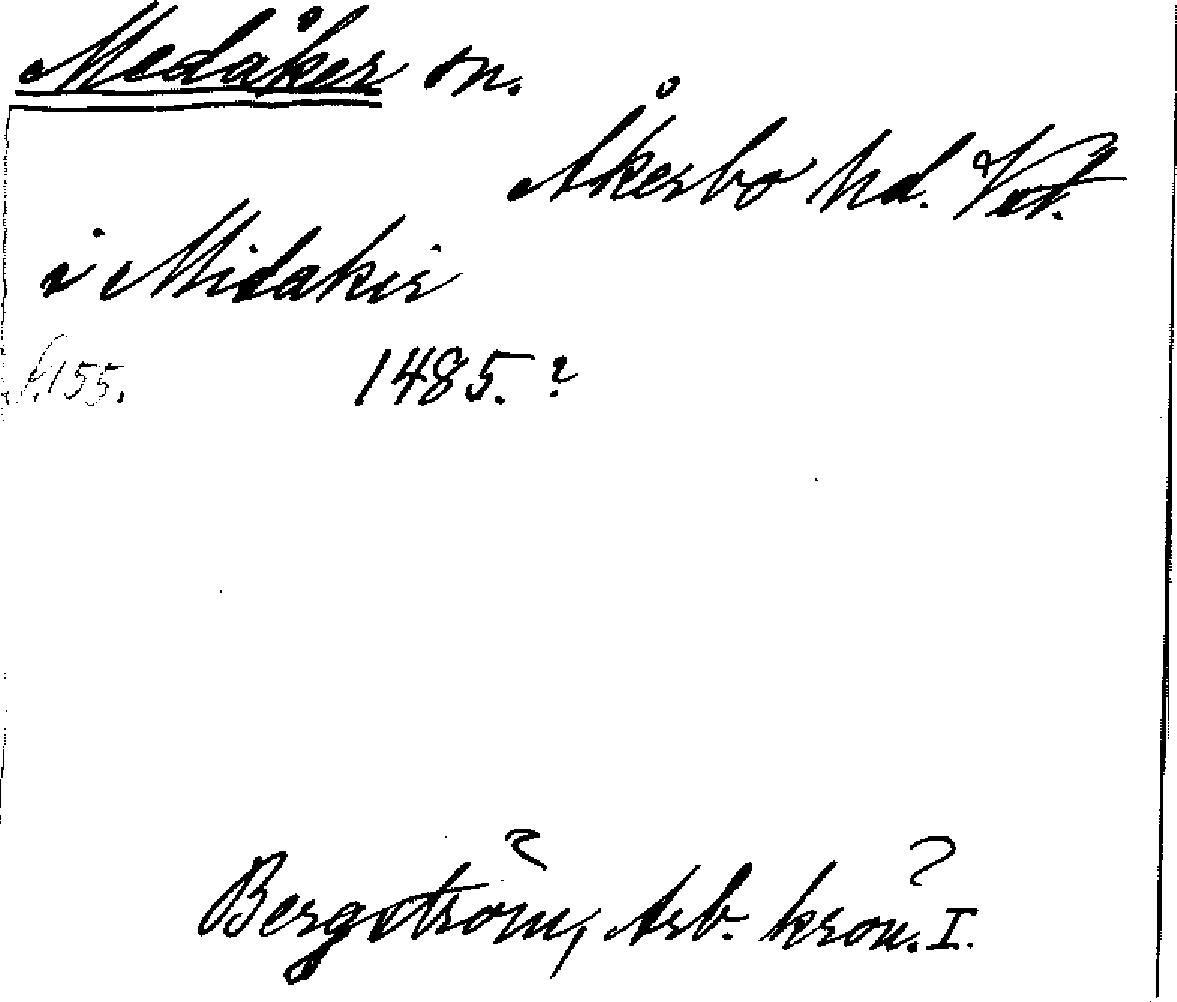 Medåker sn.
Åkerbo hd. Vstm.
i Midakir
s. 155. 1485.?
Bergström, Arb. krön. I.